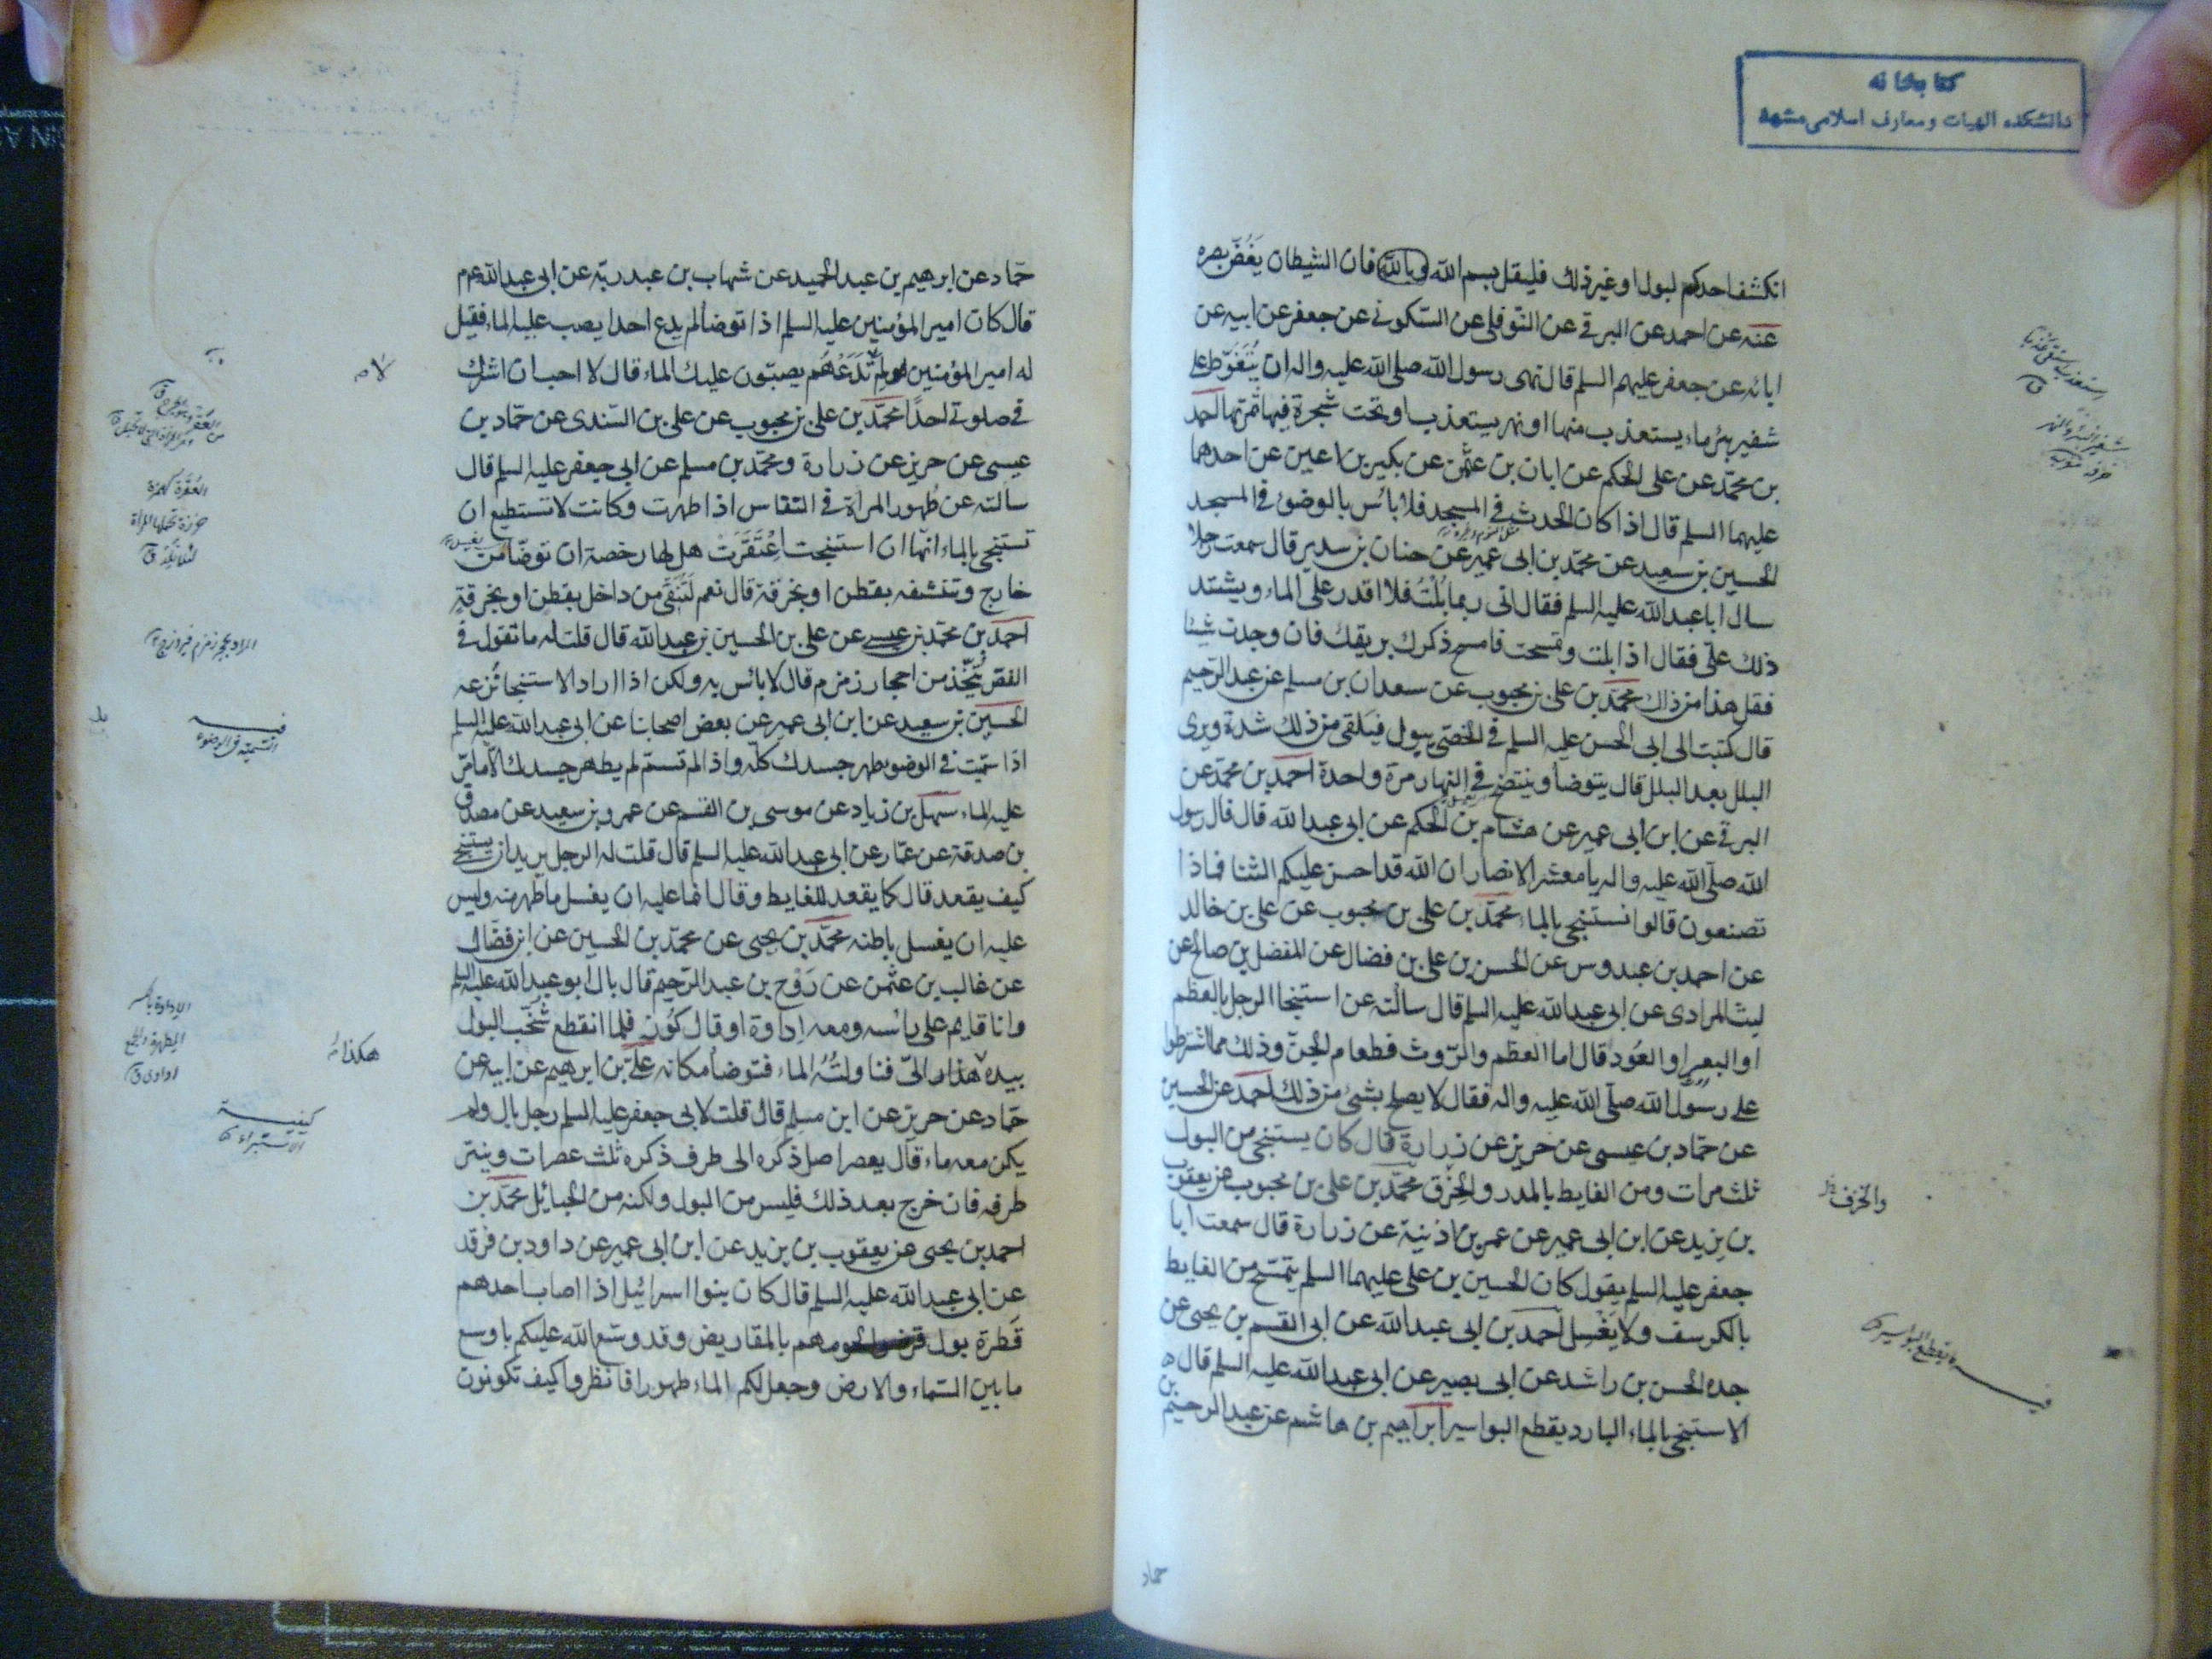 كتابخانه
دانشكده الهيات ومعارف اسلامى مشهد
انكشف احدكم لبول او غير ذلك فليقل بسم الله وبالله فان الشيطان يَغُضّ بصره
عنه عن احمد عن البرقى عن النوفلى عن السكونى عن جعفر عن ابيه عن
ابائه عن جعفر عليهم السلم قال نهى رسول الله صلى الله عليه واله ان يُتَغَوّط على
شفير بئر ماء يستعذب منها او نهر يستعذب او تحت شجرة فيها ثمرتها احمد
بن محمّد عن على الحكم عن ابان بن عثمن عن بكير بن اعين عن احدهما
عليهما السلم قال اذا كان الحدث فى المسجد فلا بائس بالوضوء فى المسجد
الحسين بن سعيد عن محمّد بن ابى عمير عن حنان بن سدير قال سمعت رجلا
سال ابا عبد الله عليه السلم فقال انى ربما بُلْتُ فلا اقدر على الماء ويشتد
ذلك علىّ فقال اذا بلت وتمسحت فامسح ذكرك بريقك فان وجدت شيئا
فقل هذا من ذاك محمّد بن على بن محبوب عن سعدان بن مسلم عن عبد الرحيم
قال كتبت الى ابى الحسن عليه السلم فى الخصى يبول فيلقى من ذلك شدة ويرى
البلل بعد البلل قال يتوضأ وينتضح فى النهار مرة واحدة احمد بن محمّد عن
البرقى عن ابن ابى عمير عن هشام بن الحكم عن ابى عبد الله قال قال رسول
الله صلّى الله عليه واله يا معشر الانصار ان الله قد احسن عليكم الثنا فماذا
تصنعون قالوا نستنجى بالماء محمّد بن على بن محبوب عن على بن خالد
عن احمد بن عبدوس عن الحسن بن على بن فضال عن المفضل بن صالح عن
ليث المرادى عن ابى عبد الله عليه السلم قال سالته عن استنجا الرجل بالعظم
او البعر او العُود قال اما العظم والرّوث فطعام الجن وذلك مما اشترطوا
على رسول الله صلّى الله عليه واله فقال لا يصلح بشئ من ذلك احمد عن الحسين
عن حمّاد بن عيسى عن حريز عن زرارة قال كان يستنجى من البول
ثلث مرات ومن الغايط بالمدر والخِرَق محمّد بن على بن محبوب عن يعقوب
والخزف
بن يزيد عن ابن ابى عمير عن عمر بن اذينة عن زرارة قال سمعت ابا
جعفر عليه السلم يقول كان الحسين بن على عليهما السلم يتمسّح من الغايط
بالكرسف ولا يَغْسِل احمد بن ابى عبد الله عن ابى القسم بن يحيى عن
جده الحسن بن راشد عن ابى بصير عن ابى عبد الله عليه السلم قال
الاستنجى بالماء البارد يقطع البواسير ابراهيم بن هاشم عن عبد الرحيم
حماد
حمّاد عن ابرهيم بن عبد الحميد عن شهاب بن عبد ربّه عن ابى عبد الله عم
قال كان امير المؤمنين عليه السلم اذا توضأ لم يدع احدا يصب عليه الماء فقيل
له امير المؤمنين لم تَدَعُهم يصبّون عليك الماء قال لا احب ان اشرك
فى صلوتى احدًا محمّد بن على بن محبوب عن على بن السّندى عن حمّاد بن
عيسى عن حريز عن زرارة ومحمّد بن مسلم عن ابى جعفر عليه السلم قال
سالته عن طُهور المراة فى النفاس اذا طهرت وكانت لا تستطيع ان
تستنجى بالماء انّها ان استنجت اعْتَقَرَتْ هل لها رخصة ان توضّأ من
خارج وتنشفه بقطن او بخرقة قال نعم لتُنَقّى من داخل بقطن او بخرقة
احمد بن محمّد بن عيسى عن على بن الحسين بن عبد الله قال قلت له ما تقول فى
الفصّ يُتّخذ من احجار زمزم قال لا بائس به ولكن اذا اراد الاستنجا نُزعه
الحسين بن سعيد عن ابن ابى عمير عن بعض اصحابنا عن ابى عبد الله عليه السلم
اذا سمّيت فى الوضو يطهر جسدك كلّه واذا لم تسمّ لم يطهر جسدك الا ما مرّ
عليه الماء سهل بن زياد عن موسى بن القسم عن عمرو بن سعيد عن مصدق
بن صدقة عن عمّار عن ابى عبد الله عليه السلم قال قلت له الرجل يريد ان يستنجى
كيف يقعد قال كما يقعد للغايط وقال انما عليه ان يغسل ما ظهر منه وليس
عليه ان يغسل باطنه محمّد بن يحيى عن محمّد بن الحسين عن ابن فضال
عن غالب بن عثمن عن رَوْح بن عبد الرحيم قال بال ابو عبد الله عليه السلم
وانا قايم على رأسه ومعه اداوة او قال كُوزٌ فلما انقطع شُخْب البول
بيده هكذا الىّ فناولتُه الماء فتوضأ مكانه علىّ بن ابرهيم عن ابيه عن
هكذا
حمّاد عن حريز عن ابن مسلم قال قلت لابى جعفر عليه السلم رجل بال ولم
يكن معه ماء قال يعصر اصل ذكره الى طرف ذكره ثلث عصرات وينتر
طرفه فان خرج بعد ذلك فليس من البول ولكنه من الحبائل محمّد بن
احمد بن يحيى عن يعقوب بن يزيد عن ابن ابى عمير عن داود بن فرقد
عن ابى عبد الله عليه السلم قال كان بنوا اسرائيل اذا اصاب احدهم
قَطرة بول قرضوا لحومهم بالمقاريض وقد وسّع الله عليكم باوسع
ما بين السّماء والارض وجعل لكم الماء طهورا فانظروا كيف تكونون
العُقَرَة كهمزة
خرزة تحملها المراة
لئلا تلد ق
التسمية فى الوضوء
الاداوة بالكسر
المطهرة والجمع
اداوى ق
كيفية
الاستبراء